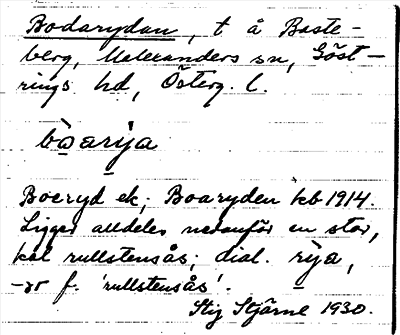 Bodarydan, t å Baste-
berg, Malexanders sn, Göst-
rings hd, Österg. l.
bo̲arì̲a
Boeryd ek; Boaryden kb 1914.
Ligger alldeles nedanför en stor,
kal rullstensås; dial. rỳa,
-or f. 'rullstensås'.
Stig Stjärne 1930.